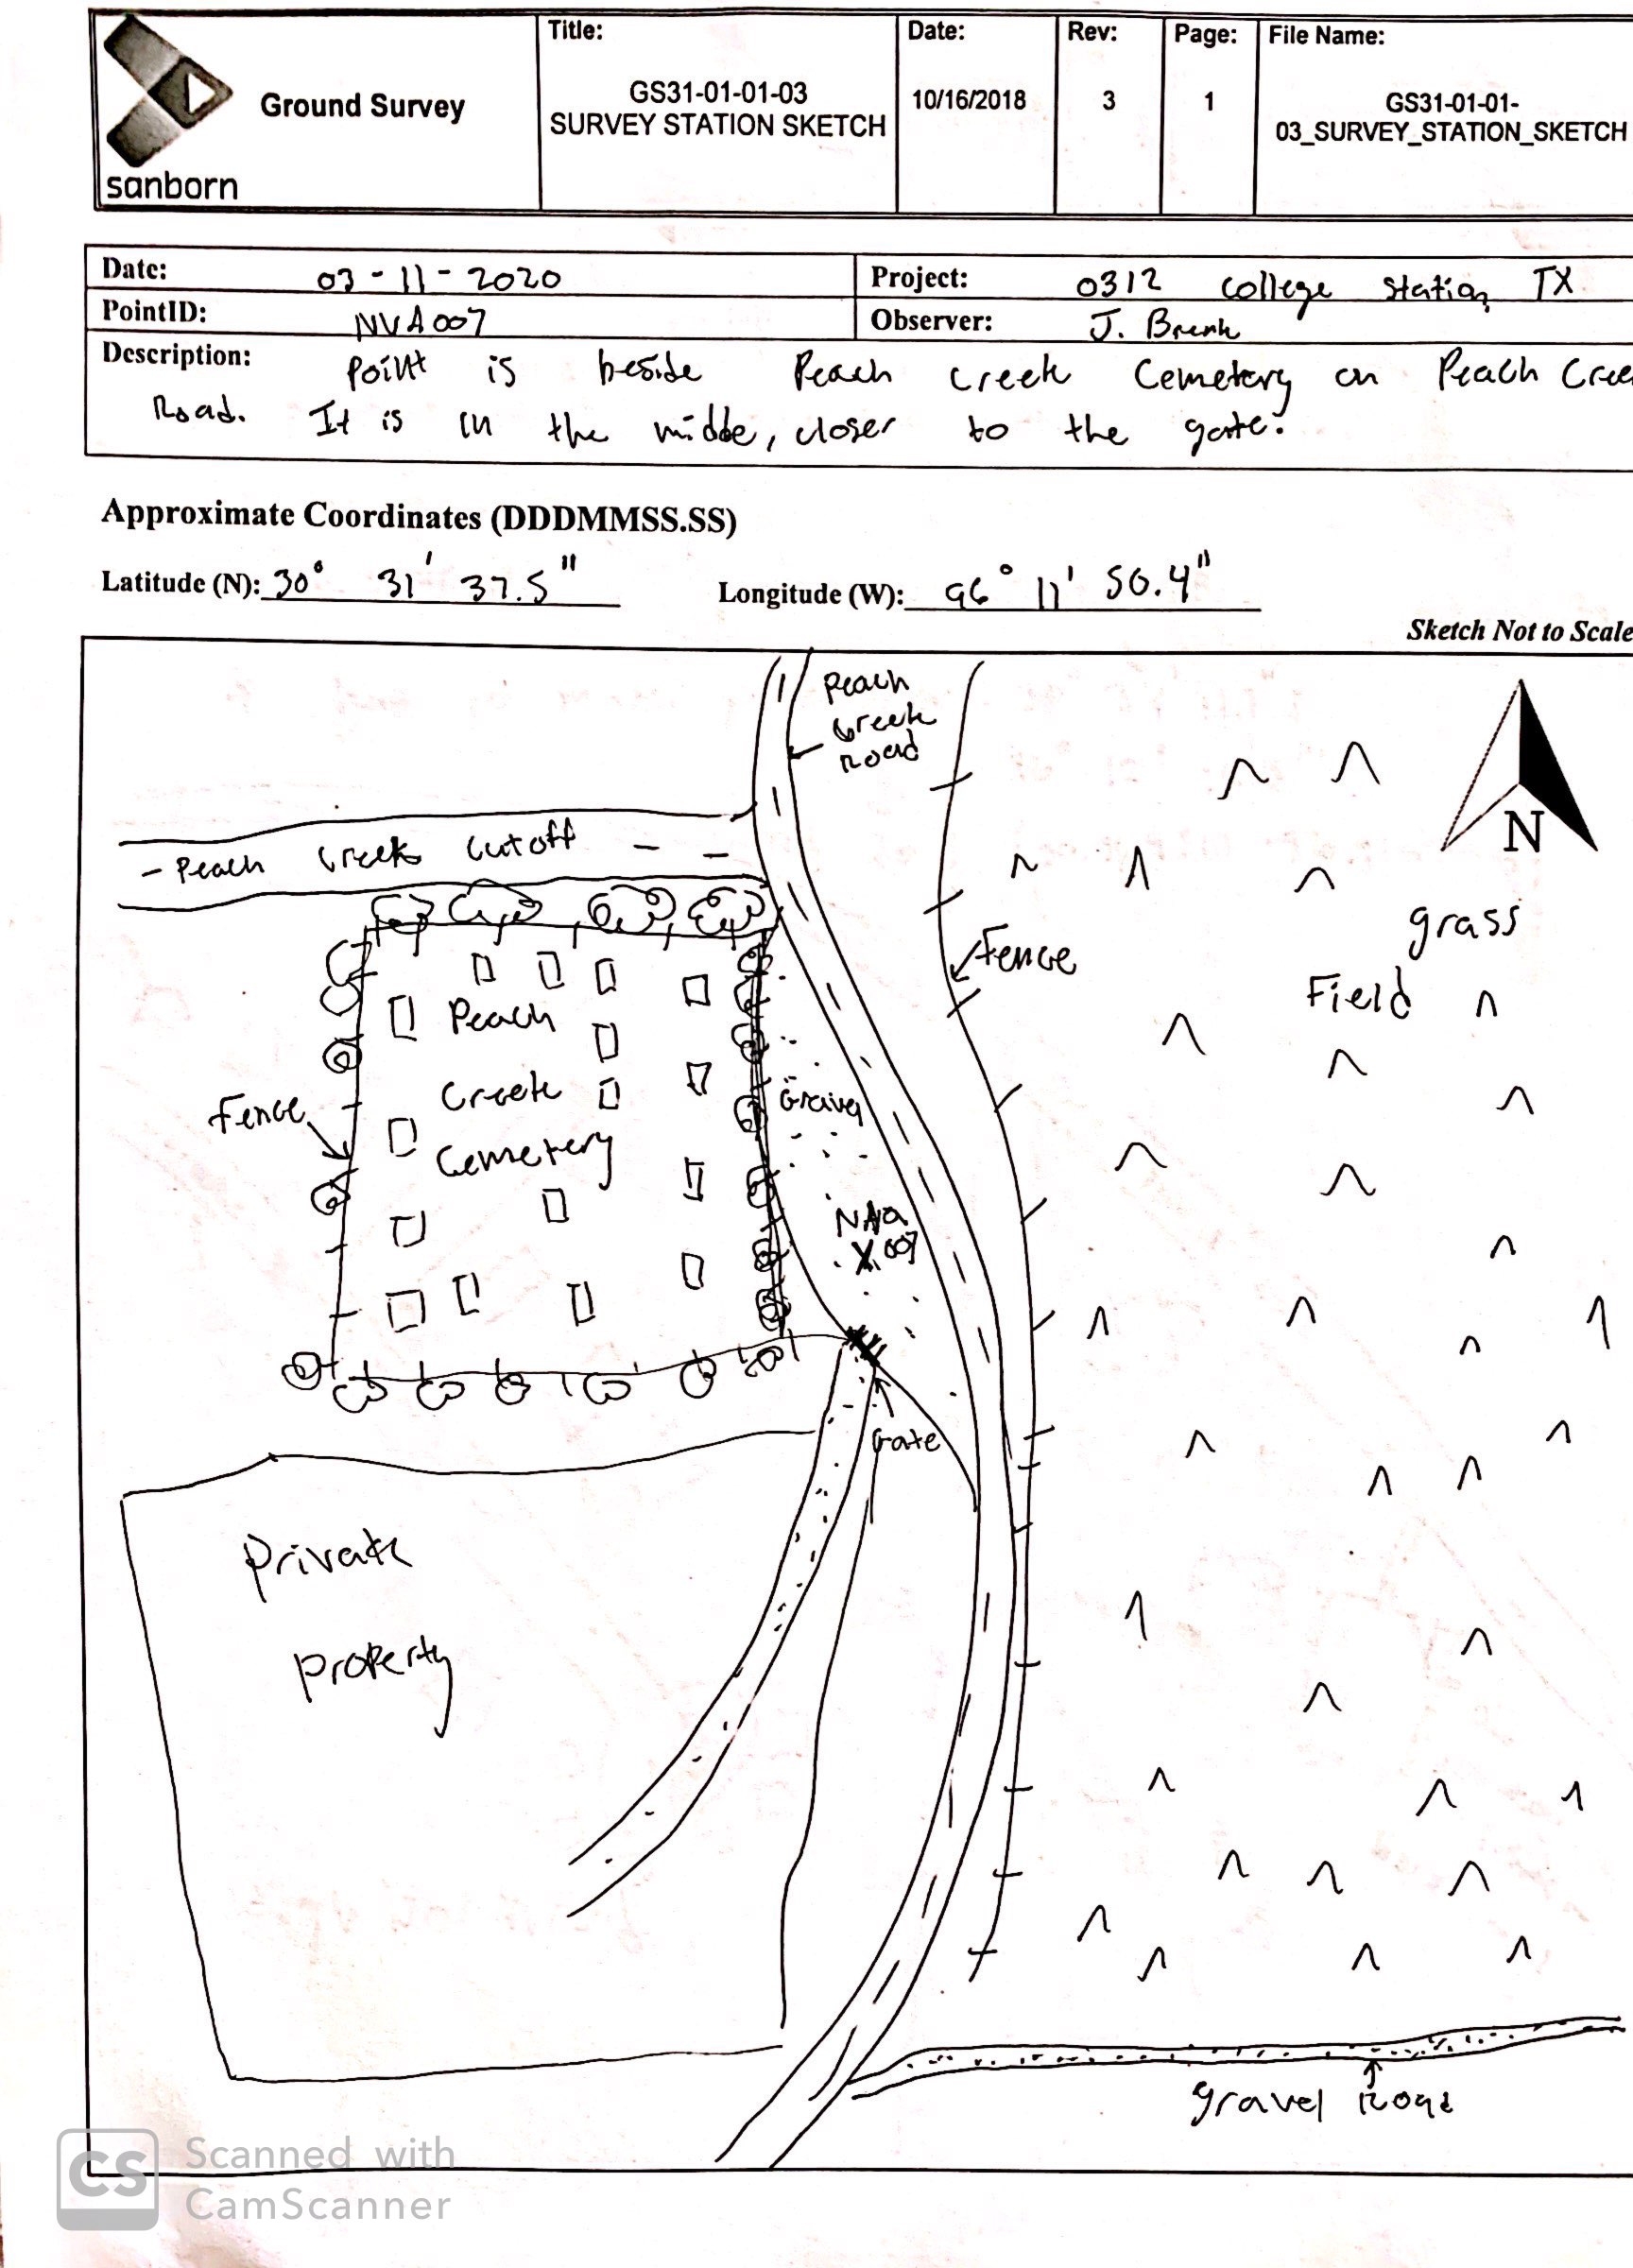 sanborn
Ground Survey
Title:
GS31-01-01-03
SURVEY STATION SKETCH
Date:
10/16/2018
Rev:
3
Page:
1
File Name:
GS31-01-01-
03_SURVEY_STATION_SKETCH
Date: 03-11-2020
Project: 0312 College Station, TX
PointID: NVA007
Observer: J.
Description: Point is beside Peach Creek Cemetery on Peach Cree
Road. It is in the midde, closer to the gate.
Approximate Coordinates (DDDMMSS.SS)
Latitude (N): 30° 31' 37.5"
Longitude (W): 96° 11' 50.4"
Sketch Not to Scale
Peach
Creek
Road
N
- Peach Creek Cutoff - -
grass
Field
Fence
Peach
Creek
Cemetery
Fence
Gravel
007
Gate
Private
Property
gravel Road
CS
Scanned with
CamScanner